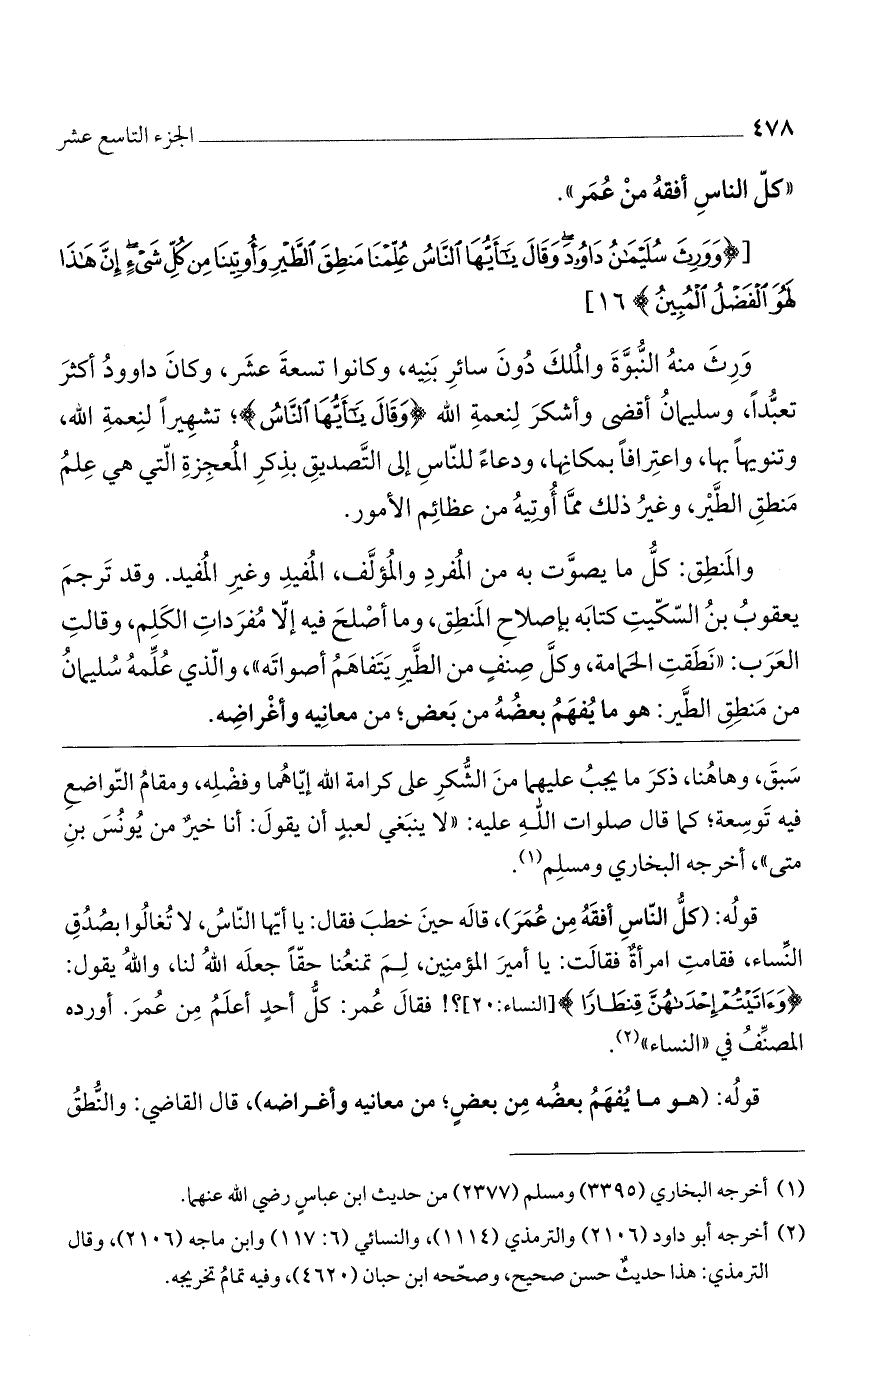 ٤٧٨ الجزء التاسع عشر
«كلّ الناسِ أفقهُ منْ عُمَر».
[﴿وَوَرِثَ سُلَيْمَٰنُ دَاوُۥدَۖ وَقَالَ يَٰٓأَيُّهَا ٱلنَّاسُ عُلِّمْنَا مَنطِقَ ٱلطَّيْرِ وَأُوتِينَا مِن كُلِّ شَىْءٍۖ إِنَّ هَٰذَا
لَهُوَ ٱلْفَضْلُ ٱلْمُبِينُ﴾ ١٦]
وَرِثَ منهُ النُّبوَّةَ والمُلكَ دُونَ سائرِ بَنِيه، وكانوا تسعةَ عشَر، وكانَ داوودُ أكثرَ
تعبُّداً، وسليمانُ أقضى وأشكرَ لِنعمةِ الله ﴿وَقَالَ يَٰٓأَيُّهَا ٱلنَّاسُ﴾؛ تشهِيراً لنِعمةِ الله،
وتنويهاً بها، واعتِرافاً بمكانِها، ودعاءً للنّاسِ إلى التَّصديقِ بذِكرِ المُعجِزةِ الّتي هي عِلمُ
مَنطقِ الطَّيْر، وغيرُ ذلك ممَّا أُوتِيهُ من عظائِم الأمور.
والمَنطِق: كلُّ ما يصوَّت به من المُفردِ والمُؤلَّف، المُفيدِ وغيرِ المُفيد. وقد تَرجمَ
يعقوبُ بنُ السّكّيتِ كتابَه بإصلاحِ المَنطِق، وما أصْلحَ فيه إلّا مُفرَداتِ الكَلِم، وقالتِ
العَرَب: «نَطَقتِ الحَمامة، وكلَّ صِنفٍ من الطَّيرِ يَتَفاهَمُ أصواتَه»، والّذي عُلِّمهُ سُليمانُ
من مَنطِقِ الطَّير: هو ما يُفهَمُ بعضُهُ من بَعض؛ من معانِيه وأغْراضِه.
سَبقَ، وهاهُنا، ذكرَ ما يجبُ عليهما منَ الشُّكرِ على كرامة الله إيّاهُما وفضْلِه، ومقامُ التّواضعِ
فيه تَوسِعة؛ كما قال صلوات اللّـهِ عليه: «لا ينبَغي لعبدٍ أن يقولَ: أنا خيرٌ من يُونُسَ بنِ
متى»، أخرجه البخاري ومسلِم(١).
قولُه: (كلُّ النّاسِ أفقَهُ مِن عُمَرَ)، قالَه حينَ خطبَ فقال: يا أيّها النّاسُ، لا تُغالُوا بصُدُقِ
النِّساء، فقامتِ امرأةٌ فقالَت: يا أميرَ المؤمنِين، لِـمَ تمنعُنا حقّاً جعلَه اللهُ لنا، واللهُ يقول:
﴿وَءَاتَيْتُمْ إِحْدَىٰهُنَّ قِنطَارًا﴾ [النساء: ٢٠]؟! فقالَ عُمر: كلُّ أحدٍ أعلَمُ مِن عُمرَ. أورده
المصنِّفُ في «النساء»(٢).
قولُه: (هـو مـا يُفهَمُ بعضُه مِن بعضٍ؛ من معانيه وأغـراضه)، قال القاضي: والنُّطقُ
(١) أخرجه البخاري (٣٣٩٥) ومسلم (٢٣٧٧) من حديث ابن عباسٍ رضي الله عنهما.
(٢) أخرجه أبو داود (٢١٠٦) والترمذي (١١١٤)، والنسائي (٦: ١١٧) وابن ماجه (٢١٠٦)، وقال
الترمذي: هذا حديثٌ حسن صحيح، وصحّحه ابن حبان (٤٦٢٠)، وفيه تمامُ تخريجه.